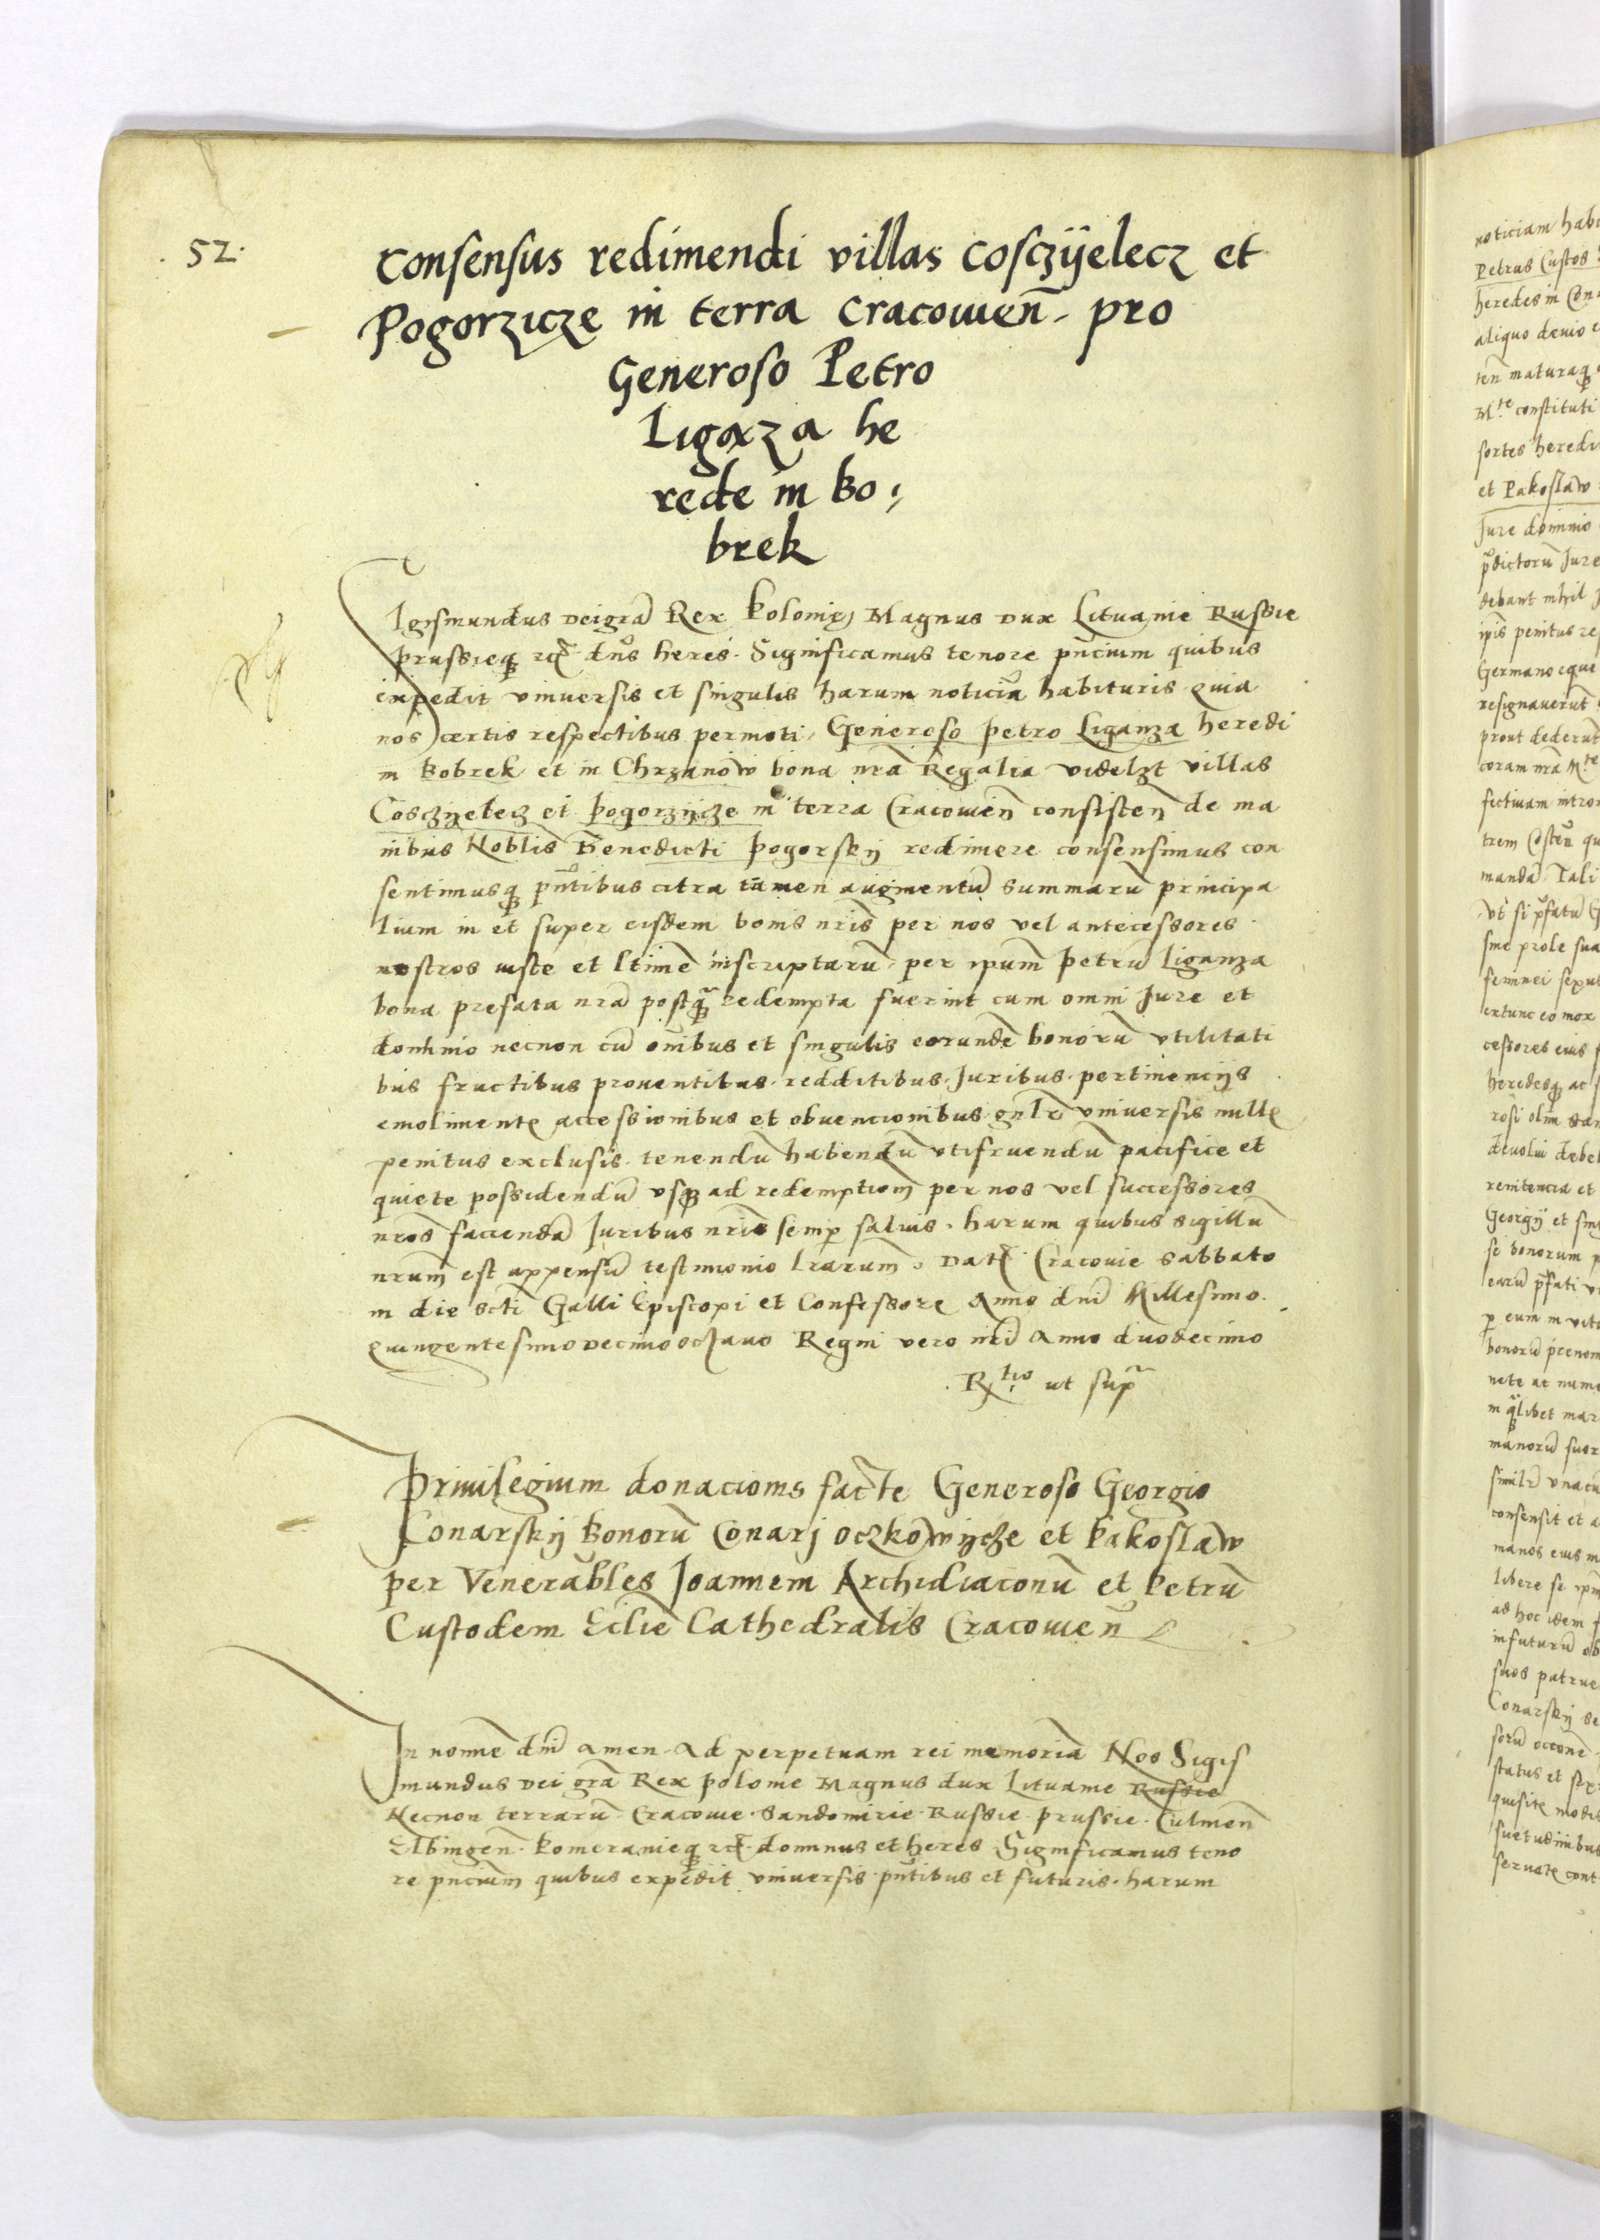 52.
Consensus redimendi villas Cosczÿelecz et
Pogorzicze in terra Cracowien̄. pro
Generoso Petro
Ligąza he
rede in Bo,
brek
Igismundus deigrā Rex Polonię, Magnus dux Lituanie Russie
prussieq̄ dn̄s heres. Significamus tenore pn̄cium quibus
expedit vniuersis et singulis harum noticiā habituris quia
nos certis respectibus permoti, Generoso Petro Liganza heredi
in Bobrek et in Chrzanow bona nrā Regalia videlzt villas
Cosczÿelecz et pogorzÿcze in terra Cracowien̄ consisten̄ de ma
nibus Noblis̄ Benedicti pogorskÿ redimere consensimus con
sentimusq̄ pn̄tibus citra tamen augmentū summarū principa
lium in et super eisdem bonis nrīs per nos vel antecessores
nostros iuste et ltimē inscriptarū. per ipum̄ Petrū Liganza
bona prefata nrā postq̄ redempta fuerint cum omni Jure et
dominio necnon cū om̄ibus et singulis eorundē bonorū vtilitati
bus fructibus prouentibus. redditibus. Juribus. pertinencÿs
emolimentę accessionibus et obuencionibus gn̄lr̄ vniuersis nullę
penitus exclusis. tenendū habendū vtifruendū pacifice et
quiete possidendū vsq̄ ad redemptiom̄ per nos vel successores
nrōs faciendā Juribus nrīs semp saluis. harum quibus sigillū
nrum̄ est appensū testimonio lrarum̄. Dat̄ Cracouie sabbato
in die sctī Galli Episcopi et Confessorę Anno dnī Millesimo.
quingentesimo decimooctauo Regni vero nrī Anno duodecimo
R̄tio ut sup̄
Priuilegium donacionis factē Generoso Georgio
Conarskÿ bonorū Conarj oczkowÿcze et Pakoslaw
per Venerables̄ Joannem Archidiaconū et Petrū
Custodem Eclīe Cathedralis Cracouien̄
In nomīe dnī amen. Ad perpetuam rei memoriā Nos Sigis
mundus Dei grā Rex polonie Magnus dux Lituanie Russie
Necnon terrarū Cracouie. Sandomirie. Russie. prussie. Culmen̄
Elbingen̄. Pomeranieq̄ dominus et heres Significamus teno
re pn̄cium̄ quibus expedit vniuersis pn̄tibus et futuris. harum
noticiam hab
Petrus Custos
heredes in Con
aliquo deuio e
ten̄ maturaq̄
M.te constituti
sortes heredi
et Pakoslaw
Jure dominio
p̄dictorū Jure
debant nihil
ip̄is penitus re
Germano eque
resignauerūt
prout dederūt
coram nrā M.te
fectiuam intro
trem Costen̄ qu
mandā Tali
vt si p̄fatū G
sine prole sua
feminei sexu
extunc eo mox
cessores eius
heredesq̄ ac
rosi olim
deuolui debe
renitencia et
Georgÿ et sin
se bonorum
earū p̄fati
p eum in vit
bonorū prenom
nete ac nume
in q̄libet mar
manorū suor
similr̄ vnacū
consensit et a
manos eius m
libere se ip̄m
ad hoc idem
infuturū ob
suos patrue
Conarskÿ de
sorū occon̄e
status et sex
quisitę modis
suetudinibus
seruatę cont